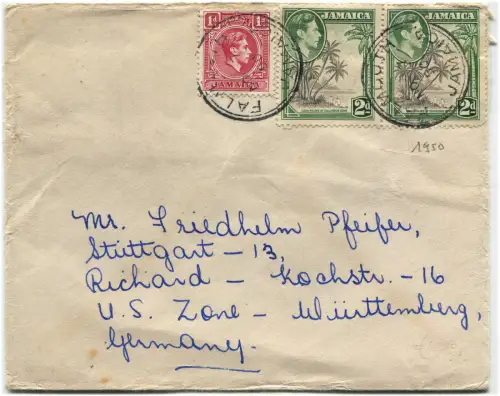 1D 1D
JAMAICA
JAMAICA
2D
JAMAICA
2D
FALM
JAMA
1950
Mr. Friedhelm Pfeifer,
Stuttgart - 13,
Richard - Kochstr. - 16
U.S. Zone - Württemberg,
Germany.